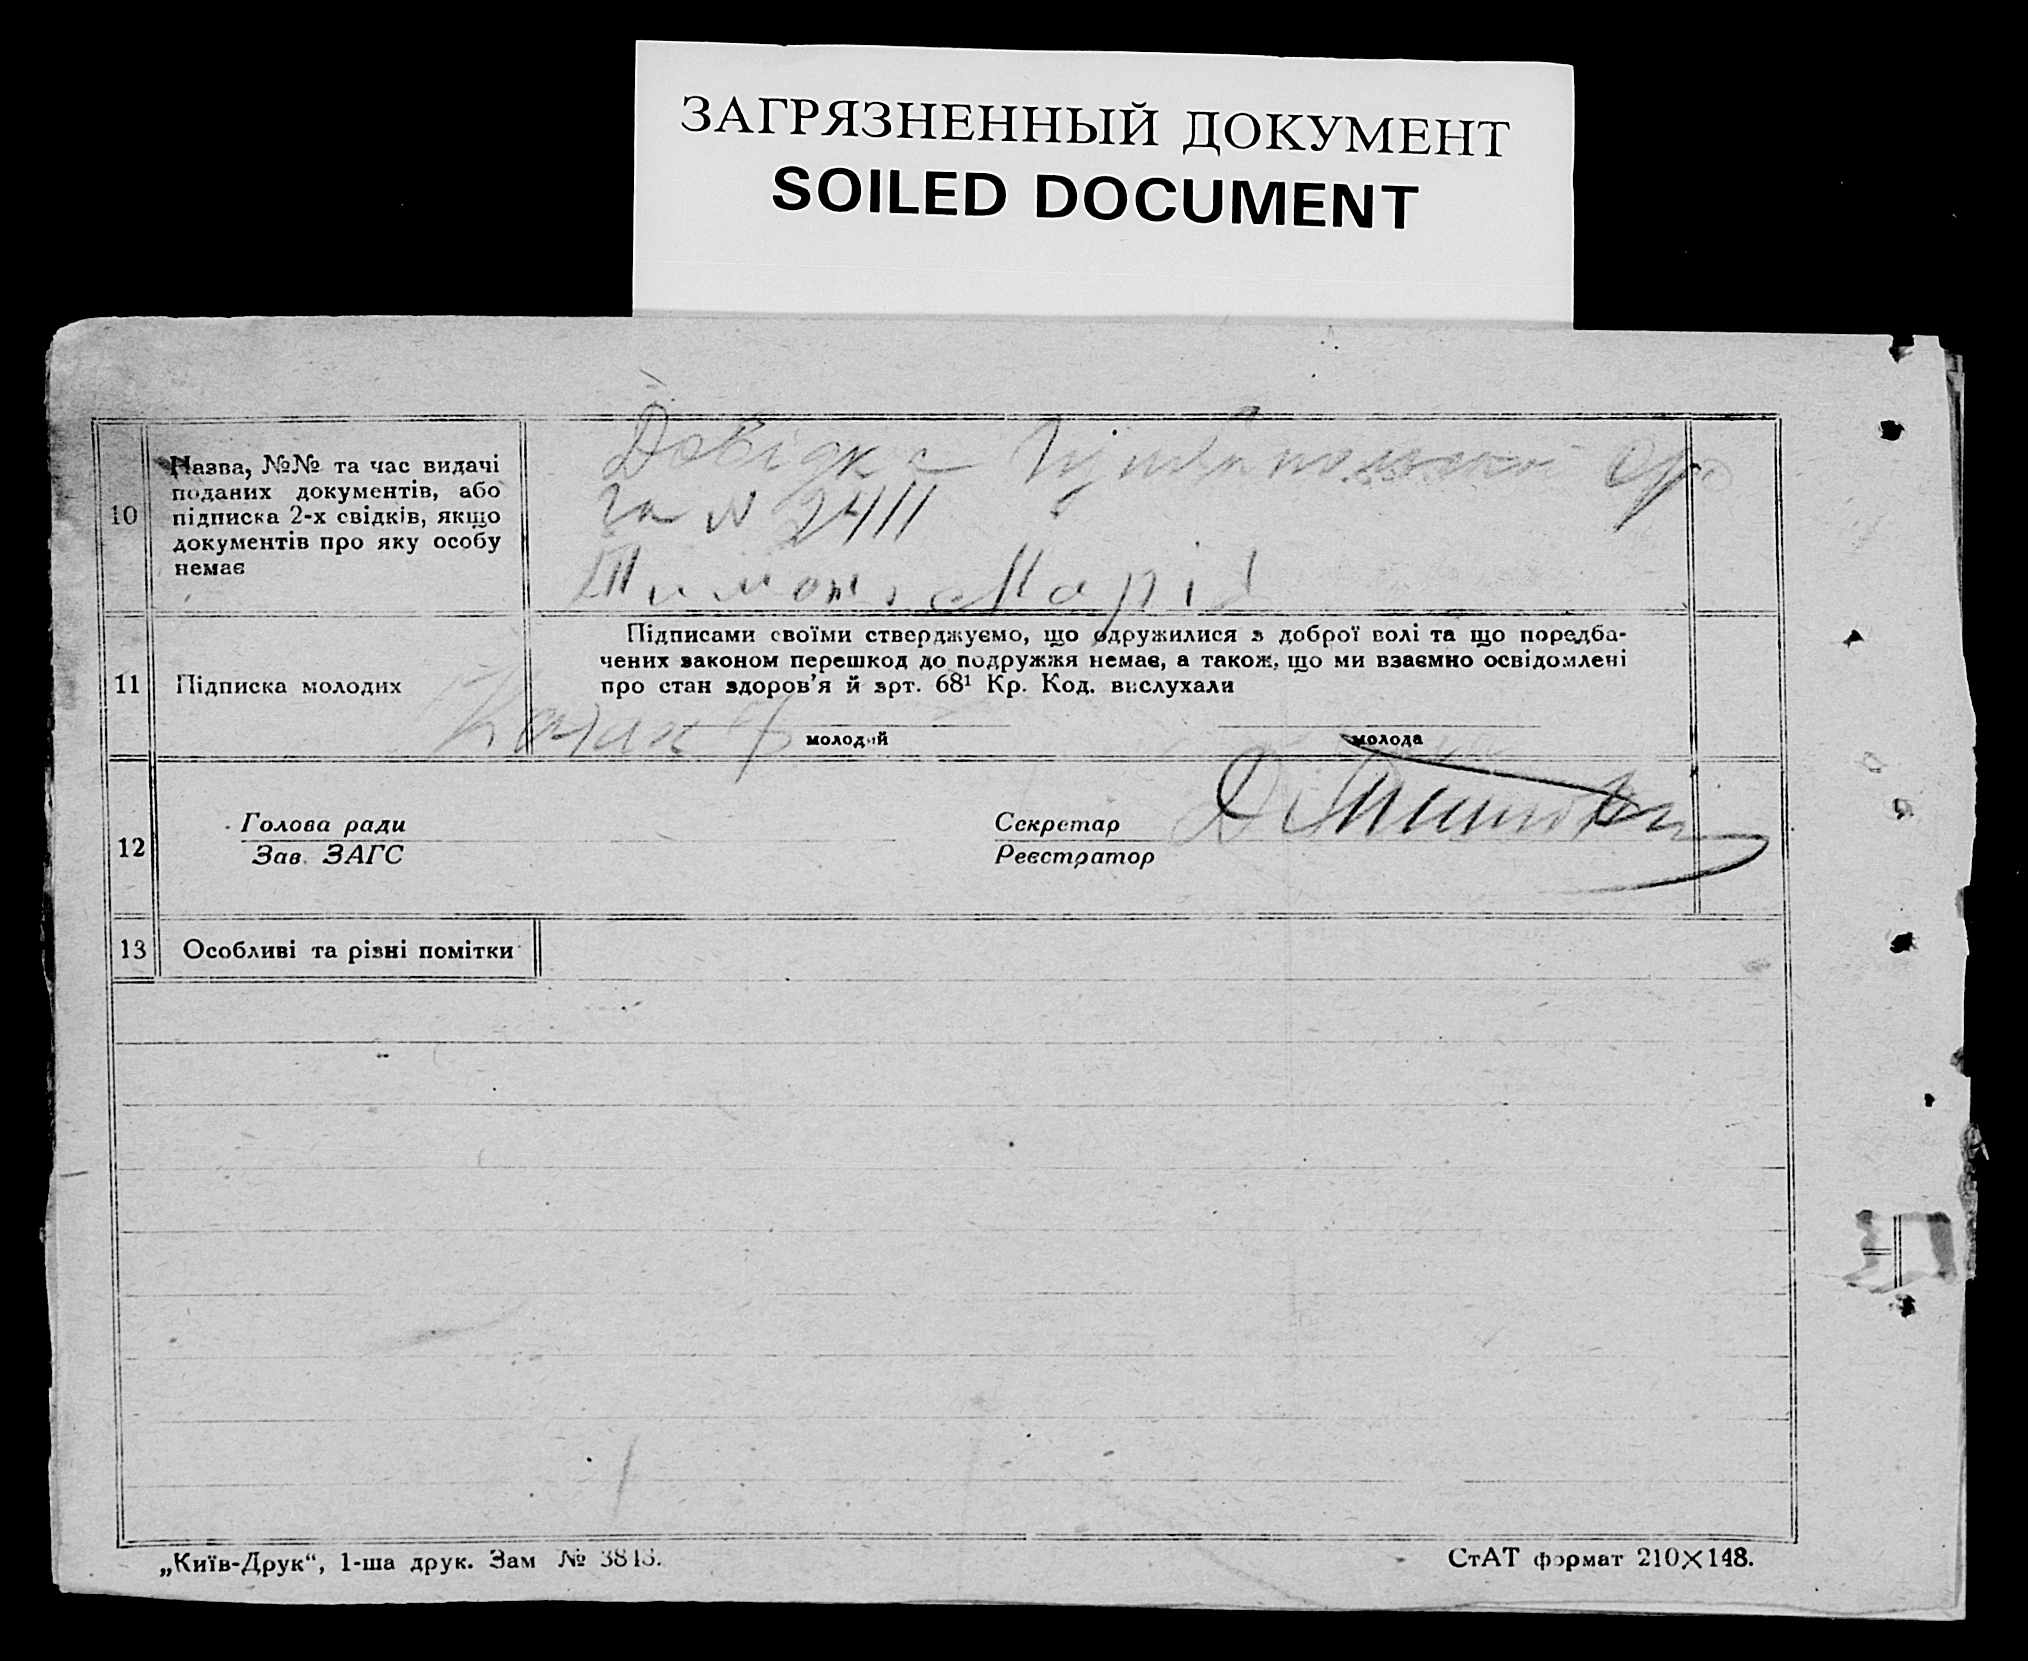 ЗАГРЯЗНЕННЫЙ ДОКУМЕНТ
SOILED DOCUMENT
10
Назва, №№ та час видачі
поданих документів, або
підписка 2-х свідків, якщо
документів про яку особу
немає
Довідка
за N 2411
Марія
11
Підписка молодих
Підписами своїми стверджуємо, що одружилися з доброї волі та що поредба-
чених законом перешкод до подружжя немає, а також, що ми взаємно освідомлені
про стан здоров'я й арт. 68¹ Кр. Код. вислухали
молодий
молода
12
Голова ради
Зав. ЗАГС
Секретар
Реєстратор
13
Особливі та різні помітки
„Київ-Друк“, 1-ша друк. Зам №
СтАТ формат 210×148.